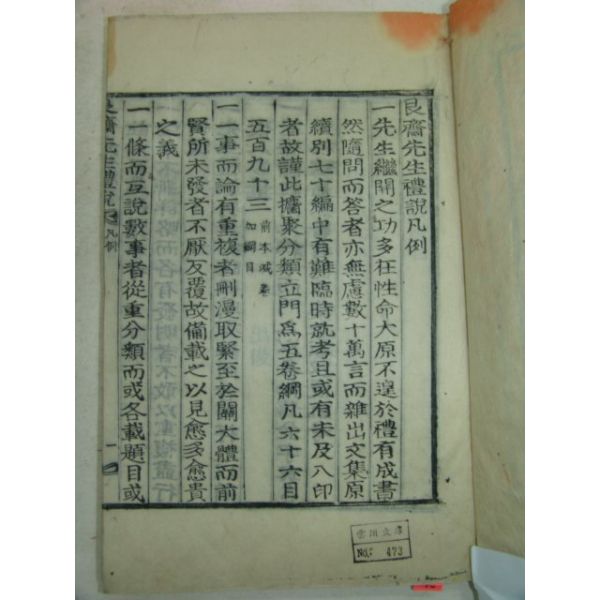 艮齋先生禮說凡例
一先生繼開之功多在性命大原不遑於禮有成書
然隨問而答者亦無慮數十萬言而雜出文集原
續別七十編中有難臨時就考且或有未及入印
者故謹此攟聚分類立門爲五卷綱凡六十六目
五百九十三
一一事而論有重複者刪漫取緊至於關大體而前
賢所未發者不厭反覆故備載之以見愈多愈貴
之義
一一條而互說數事者從重分類而或各載題目或
艮齋先生禮說
凡例
一
No. 473